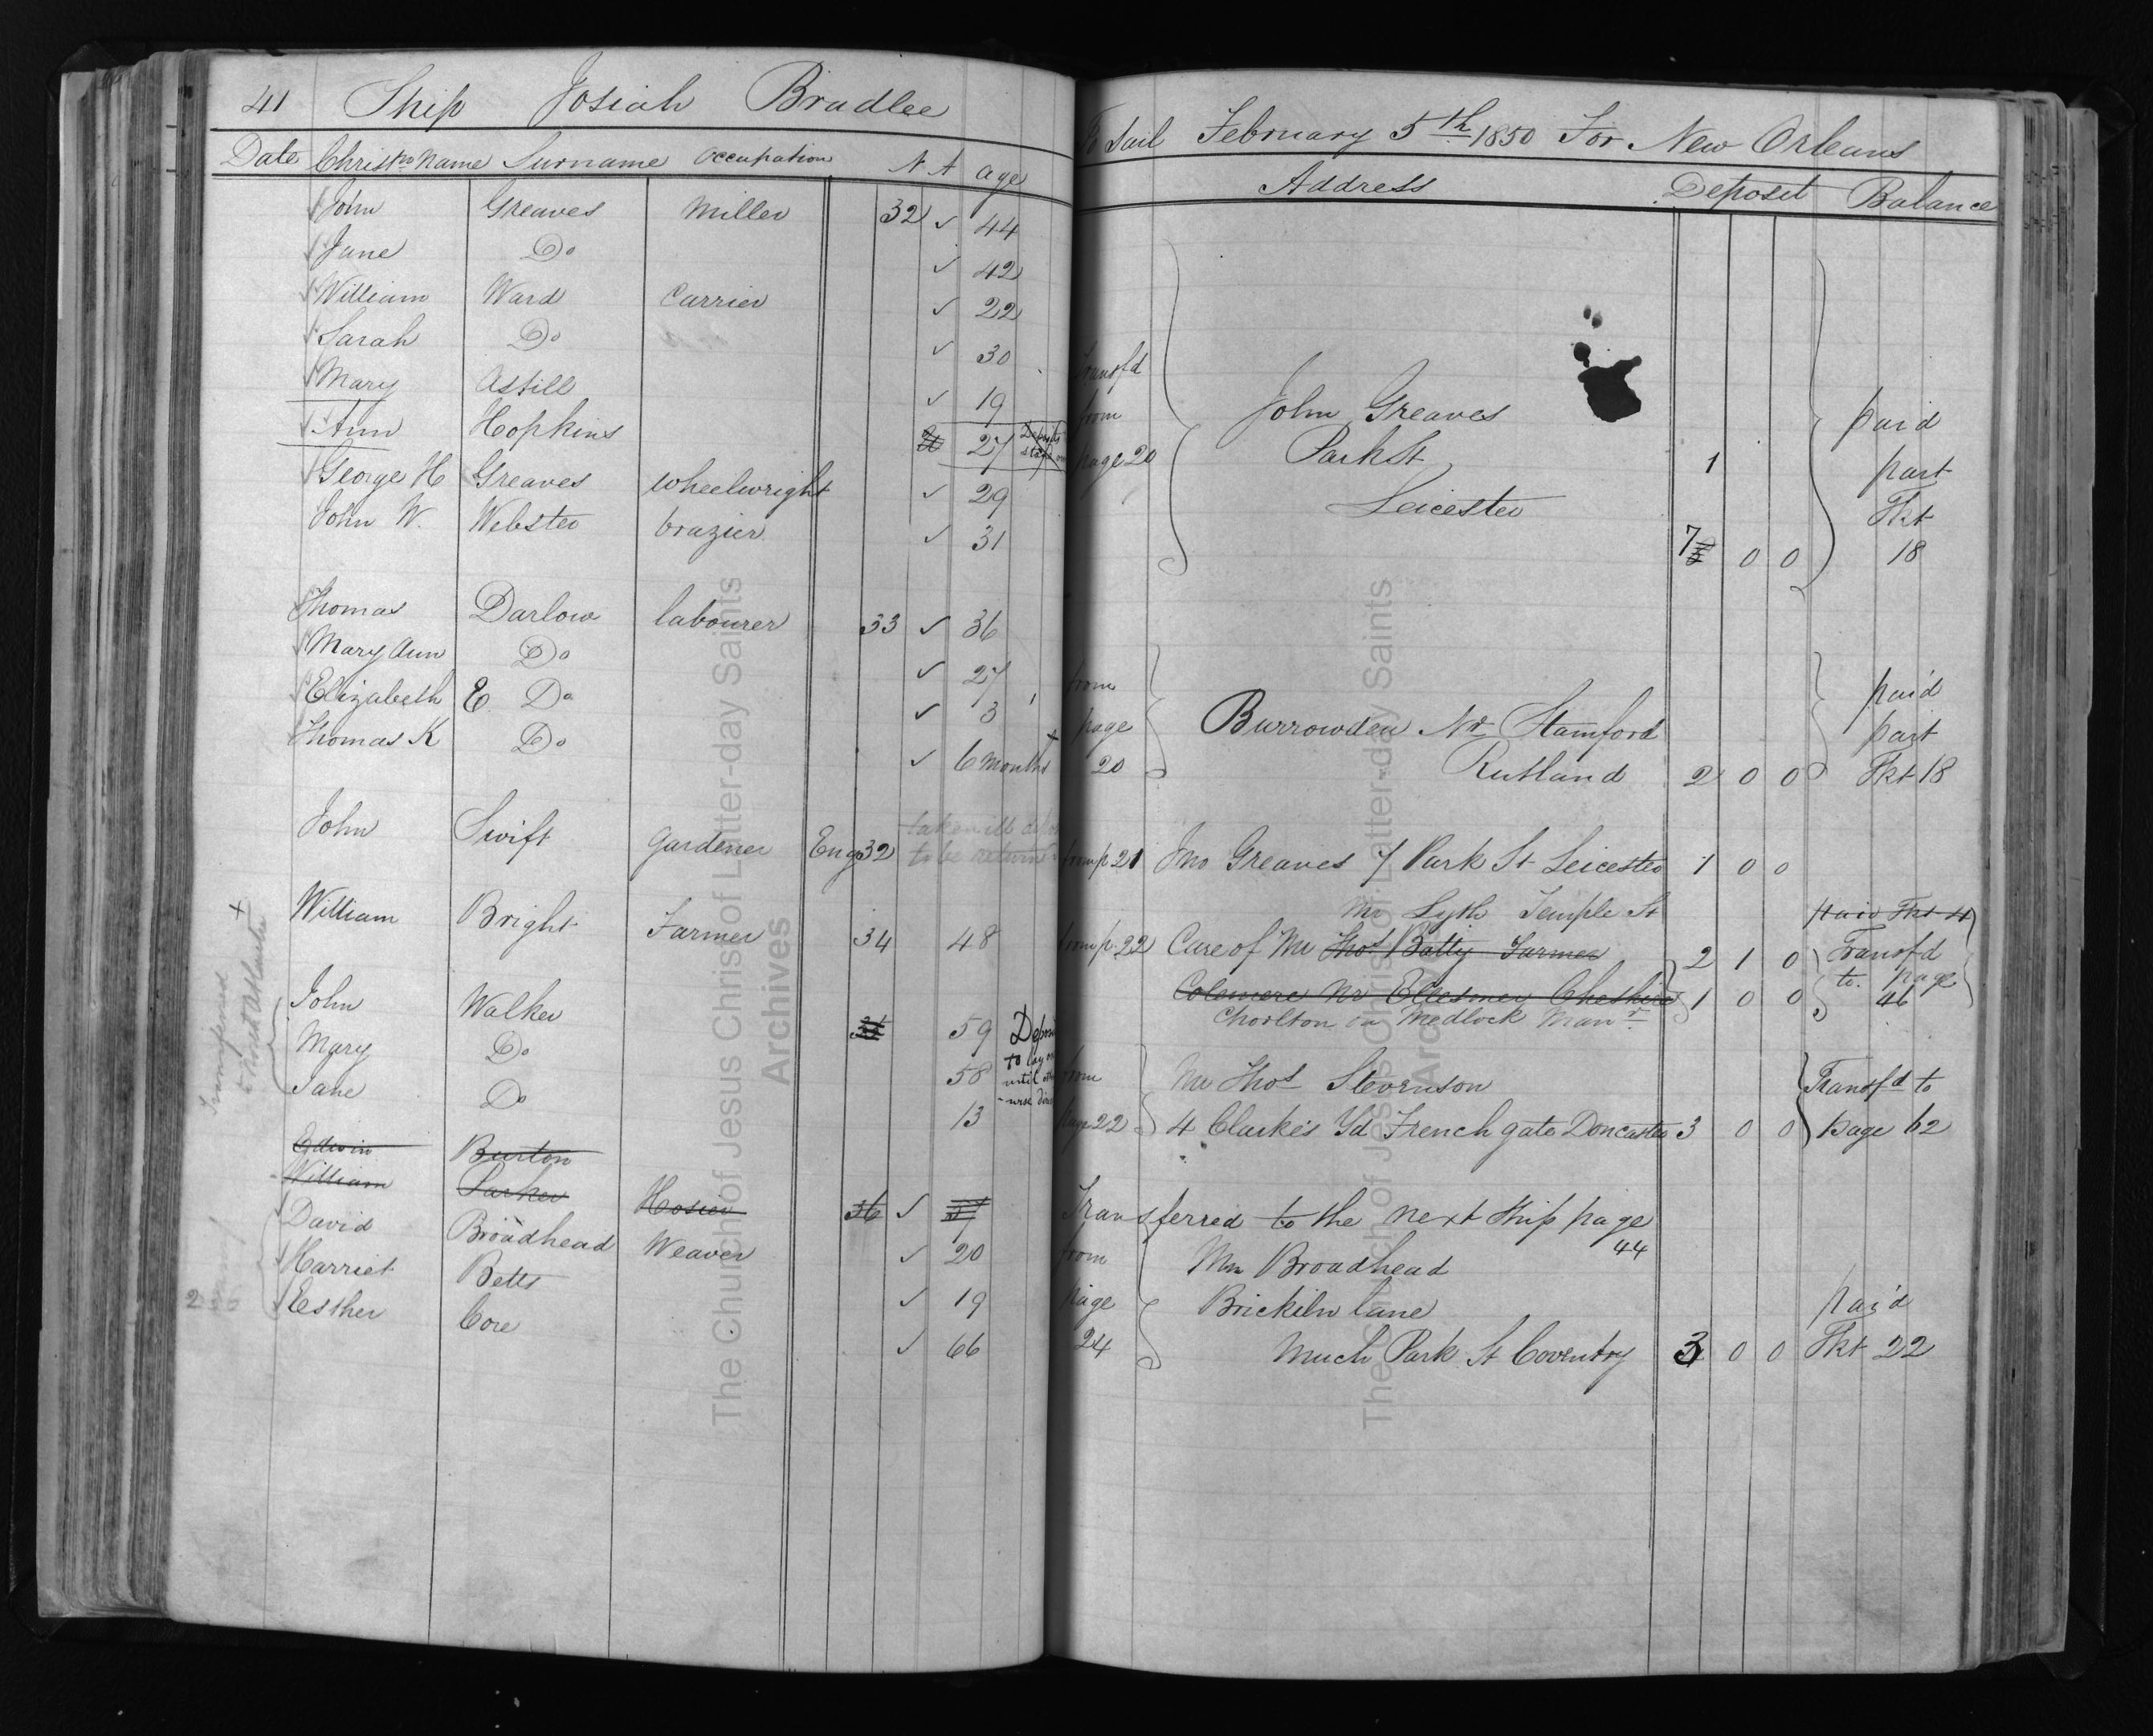 41 Ship Josiah Bradlee
To Sail February 5th 1850 For New Orleans
Date Christn Name Surname Occupation N A age
Address Deposit Balance
John Greaves Miller 32 ✓ 44
Jane Do ✓ 42
William Ward Carrier ✓ 22
Sarah Do ✓ 30
Mary Astill ✓ 19
Ann Hopkins 27
George H Greaves wheelwright ✓ 29
John W. Webster brazier ✓ 31
Transfd
from
page 20
John Greaves
Park St
Leicester
1
7 0 0
paid
part
Tkt
18
Thomas Darlow labourer 33 ✓ 36
Mary Ann Do ✓ 27
Elizabeth E Do ✓ 3
Thomas K Do ✓ 6 months
from
page
20
Burrowden Nr Stamford
Rutland 2 0 0
paid
part
Tkt 18
John Swift Gardener Eng 32
taken ill
to be return
from p 21 Jno Greaves 7 Park St Leicester 1 0 0
William Bright Farmer 34 48
from p. 22 Care of Mr Thos Batty Farmer 2 1 0
Mr Lyth Temple St
Colemere Nr Ellesmer Cheshire 1 0 0
Chorlton on Medlock Manr
paid Tkt
Transfd
to page
46
John Walker 59
Mary Do 58
Jane Do 13
to lay
until
from
page 22
Mr Thos Stevenson
4 Clarke's Yd French gate Doncaster 3 0 0
Transfd to
page 62
Transferred
Edwin Burton
William Parker Hosier 36 ✓
Transferred to the next Ship page
44
David Broadhead Weaver ✓ 20
Harriet Betts ✓ 19
Esther Core ✓ 66
from
page
24
Mr Broadhead
Brickiln lane
Much Park St Coventry 3 0 0
paid
Tkt 22
The Church of Jesus Christ of Latter-day Saints
Archives
The Church of Jesus Christ of Latter-day Saints
Archives